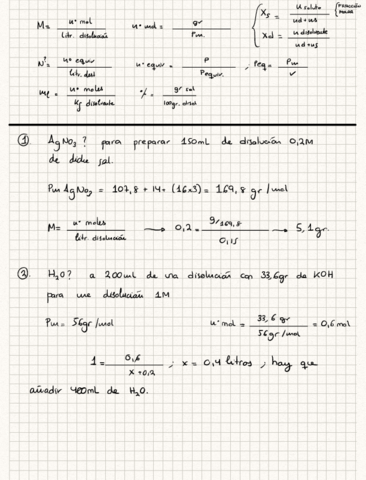 M= nº mol / litr. disolución   nº mol = gr / Pm.   { Xs = n soluto / nd+ns   (fracción molar
Xd = n disolvente / nd+ns
Nº= nº equiv / litr. disol   nº equiv = P / Pequiv.   ; Peq = Pm / v
m = nº moles / Kg disolvente   % = gr sol / 100gr. disol
① AgNO3? para preparar 150ml de disolución 0,2M
de dicha sal.
Pm AgNO3 = 107,8 + 14 + (16x3) = 169,8 gr/mol
M= nº moles / litr disolución → 0,2 = g/169,8 / 0,15 → 5,1gr.
② H2O? a 200ml de una disolución con 33,6gr de KOH
para una disolución 1M
Pm= 56gr/mol   nº mol = 33,6 gr / 56 gr/mol = 0,6 mol
1 = 0,6 / x+0,2 ; x = 0,4 litros ; hay que
añadir 400ml de H2O.